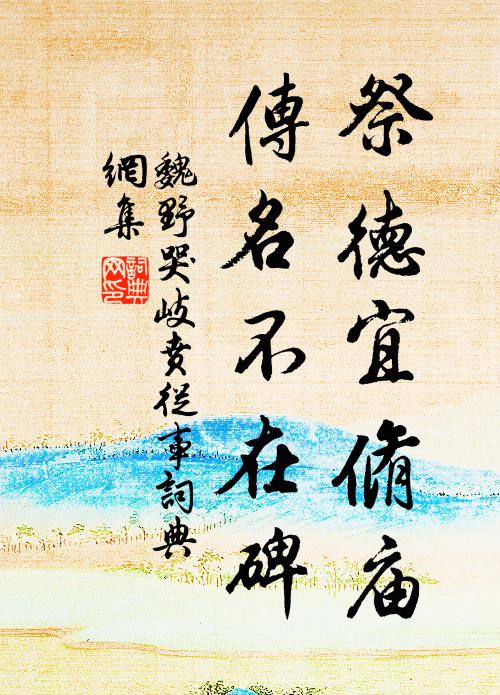 祭德宜脩庙
傳名不在碑
魏野哭岐賁從事詞典
網集
詞典网印